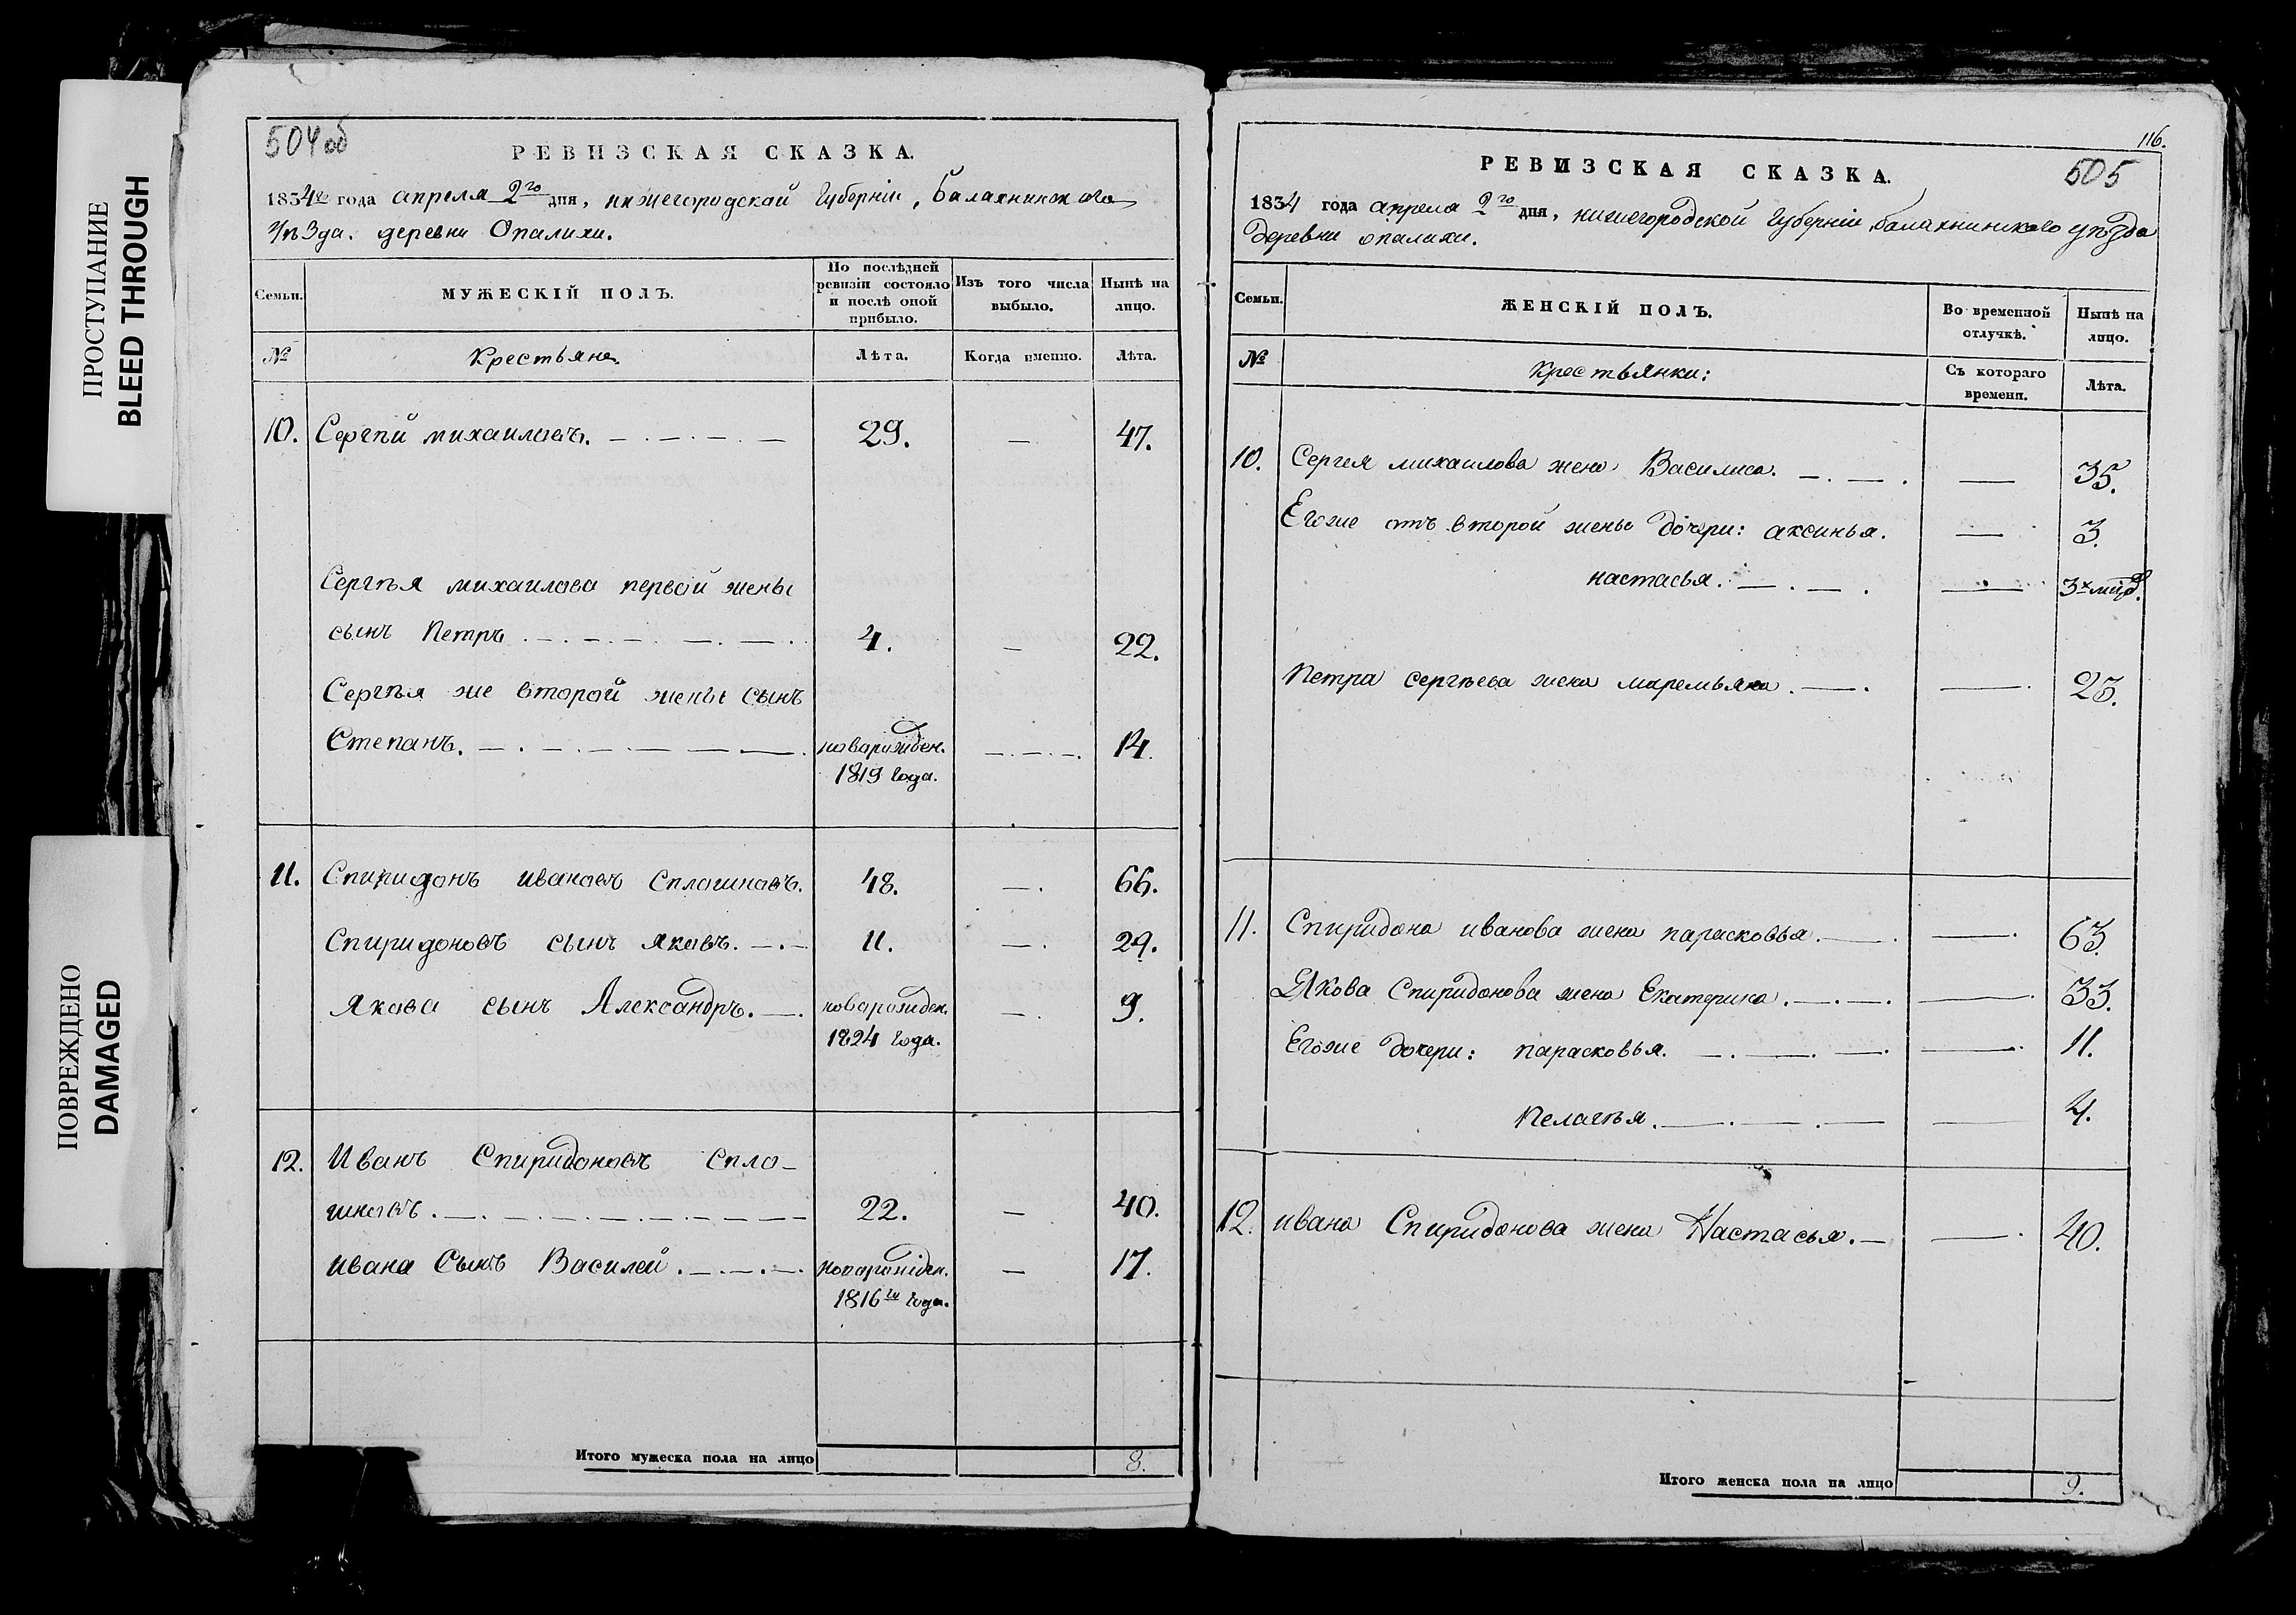 ПРОСТУПАНИЕ
BLEED THROUGH
ПОВРЕЖДЕНО
DAMAGED
504 об
РЕВИЗСКАЯ СКАЗКА.
1834го года апреля 2го дня, нижегородской Губернiи, балахнинского
уѣзда. деревни Опалихи.
Семьи. МУЖЕСКIЙ ПОЛЪ. По послѣдней ревизiи состояло и послѣ оной прибыло. Изъ того числа выбыло. Нынѣ на лицо.
№ Крестьяне. Лѣта. Когда именно. Лѣта.
10. Сергѣй михаиловъ. 29. — 47.
Сергѣя михаилова первой жены
сынъ Петръ 4. — 22.
Сергѣя же второй жены сынъ
Степанъ. новорожден. 14.
1819 года.
11. Спиридонъ ивановъ Сплошновъ. 48. — 66.
Спиридоновъ сынъ яковъ. 11. — 29.
Якова сынъ Александръ. новорожден. — 9.
1824 года.
12. Иванъ Спиридоновъ Спло-
шновъ. 22. — 40.
ивана Сынъ Василей. новорожден. — 17.
1816го года.
Итого мужеска пола на лицо 8.
116.
505
РЕВИЗСКАЯ СКАЗКА.
1834 года апреля 2го дня, нижегородской Губернiи балахнинского уѣзда
деревни опалихи.
Семьи. ЖЕНСКIЙ ПОЛЪ. Во временной отлучкѣ. Нынѣ на лицо.
№ Крестьянки: Съ котораго времени. Лѣта.
10. Сергея михаилова жена Василиса. — 35.
Егоже отъ второй жены дочери: аксинья. — 3.
настасья. — 3х мцд.
Петра сергѣева жена маремьяна. — 23.
11. Спиридона иванова жена парасковья. — 63.
Якова Спиридонова жена Екатерина. — 33.
Егоже дочери: парасковья. — 11.
пелагѣя. — 4.
12. ивана Спиридонова жена Настасья. — 40.
Итого женска пола на лицо 9.